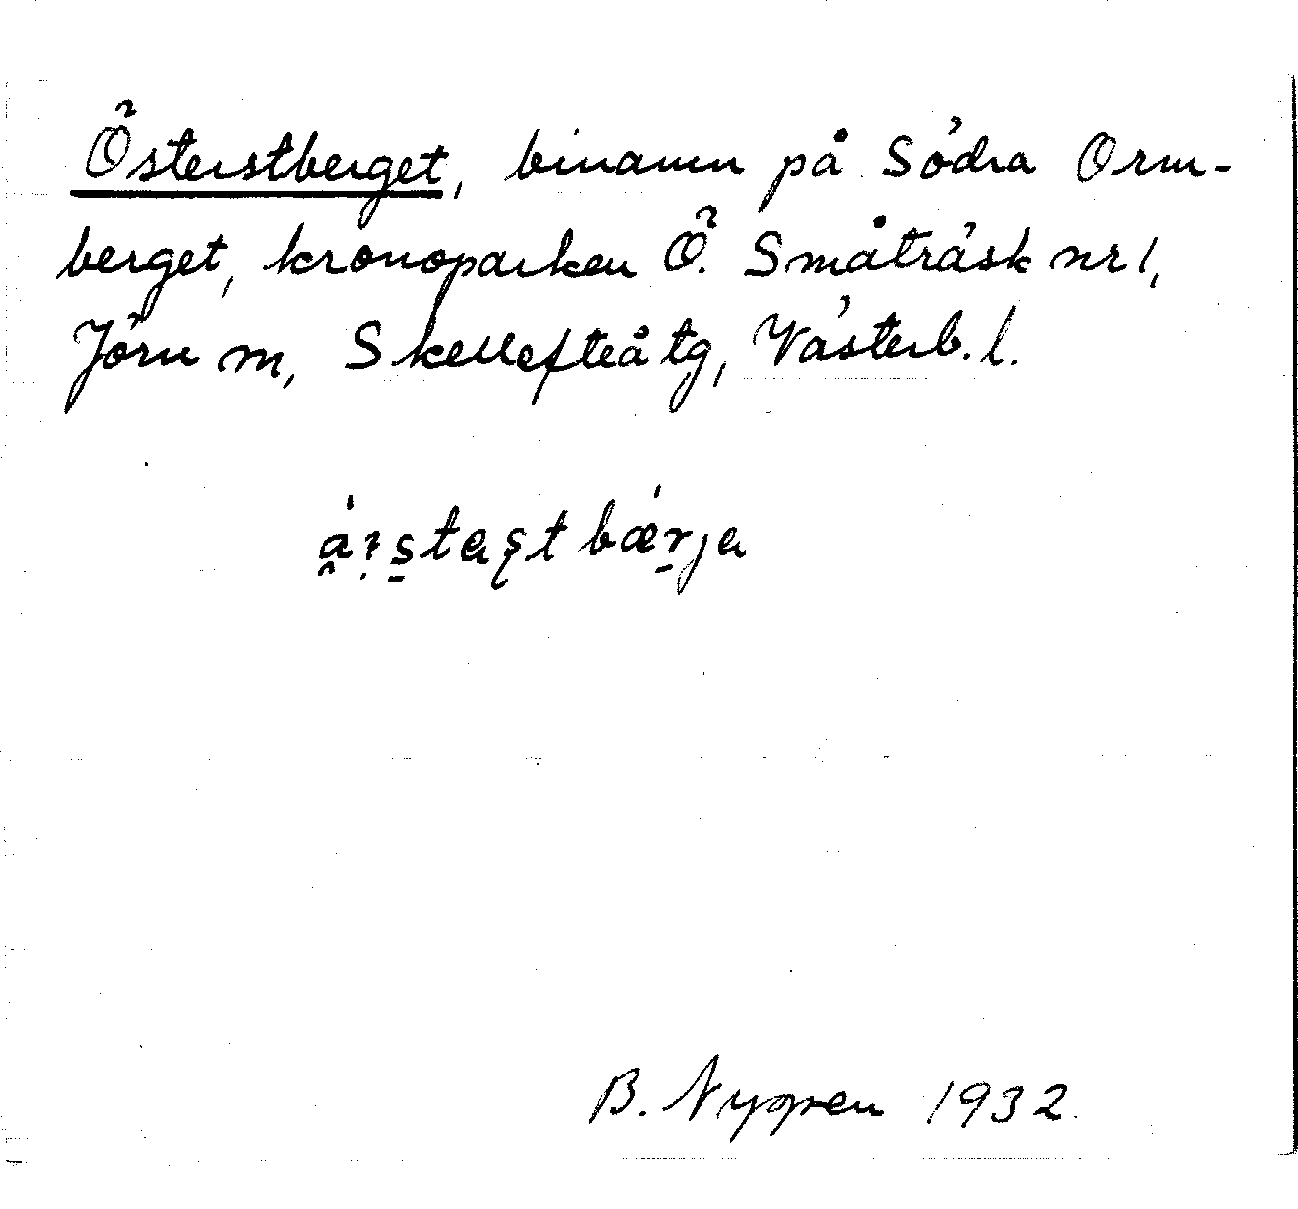 Österstberget, binamn på Södra Orm-
berget, kronoparken Ö. Småträsk nr 1,
Jörn sn, Skellefteå tg, Västerb. l.
B. Nygren 1932